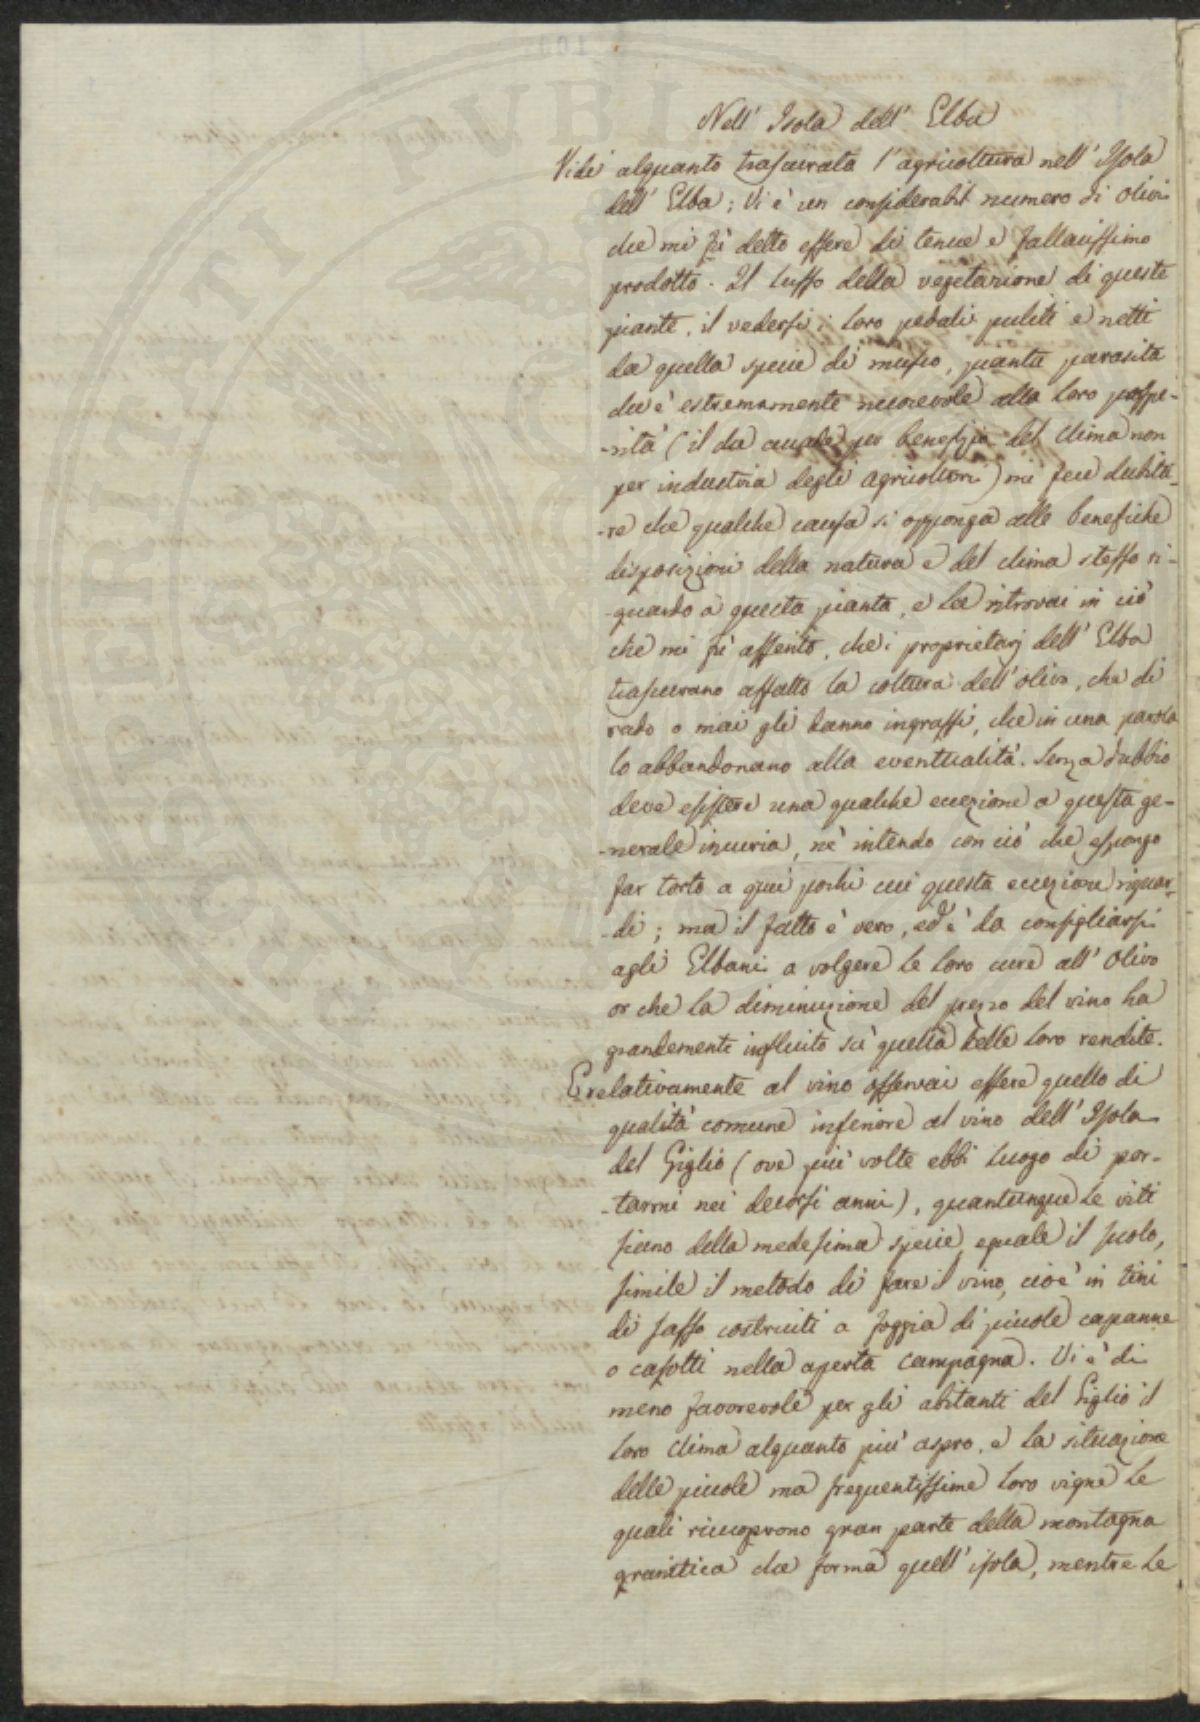 Nell' Isola dell' Elba
Vidi alquanto trascurata l'agricoltura nell' Isola
dell' Elba; Vi è un considerabil numero di olivi
che mi fù detto essere di tenue e fallacissimo
prodotto. Il lusso della vegetazione di queste
piante, il vedersi i loro pedali puliti e netti
da quella specie di musco, pianta parasita
che è estremamente nuocevole alla loro prospe-
-rità (il che accade per benefizio del clima non
per industria degli agricoltori) mi fece dubita-
-re che qualche causa si opponga alle benefiche
disposizioni della natura e del clima stesso ri-
-guardo a questa pianta, e la ritrovai in ciò
che mi fù asserito, che i proprietarj dell' Elba
trascurano affatto la coltura dell'olivo, che di
rado o mai gli danno ingrassi, che in una parola
lo abbandonano alla eventualità. Senza dubbio
deve esistere una qualche eccezione a questa ge-
-nerale incuria, nè intendo con ciò che espongo
far torto a quei pochi cui questa eccezione riguar-
-di; ma il fatto è vero, ed è da consigliarsi
agli Elbani a volgere le loro cure all' Olivo
or che la diminuzione del prezzo del vino ha
grandemente influito sù quella delle loro rendite.
E relativamente al vino osservai essere quello di
qualità comune inferiore al vino dell' Isola
del Giglio (ove più volte ebbi luogo di por-
-tarmi nei decorsi anni), quantunque le viti
sieno della medesima specie, eguale il suolo,
simile il metodo di fare il vino, cioè in tini
di sasso costruiti a foggia di piccole capanne
o casotti nella aperta campagna. Vi è di
meno favorevole per gli abitanti del Giglio il
loro clima alquanto più aspro, e la situazione
delle piccole ma frequentissime loro vigne le
quali ricuoprono gran parte della montagna
granitica che forma quell' isola, mentre le